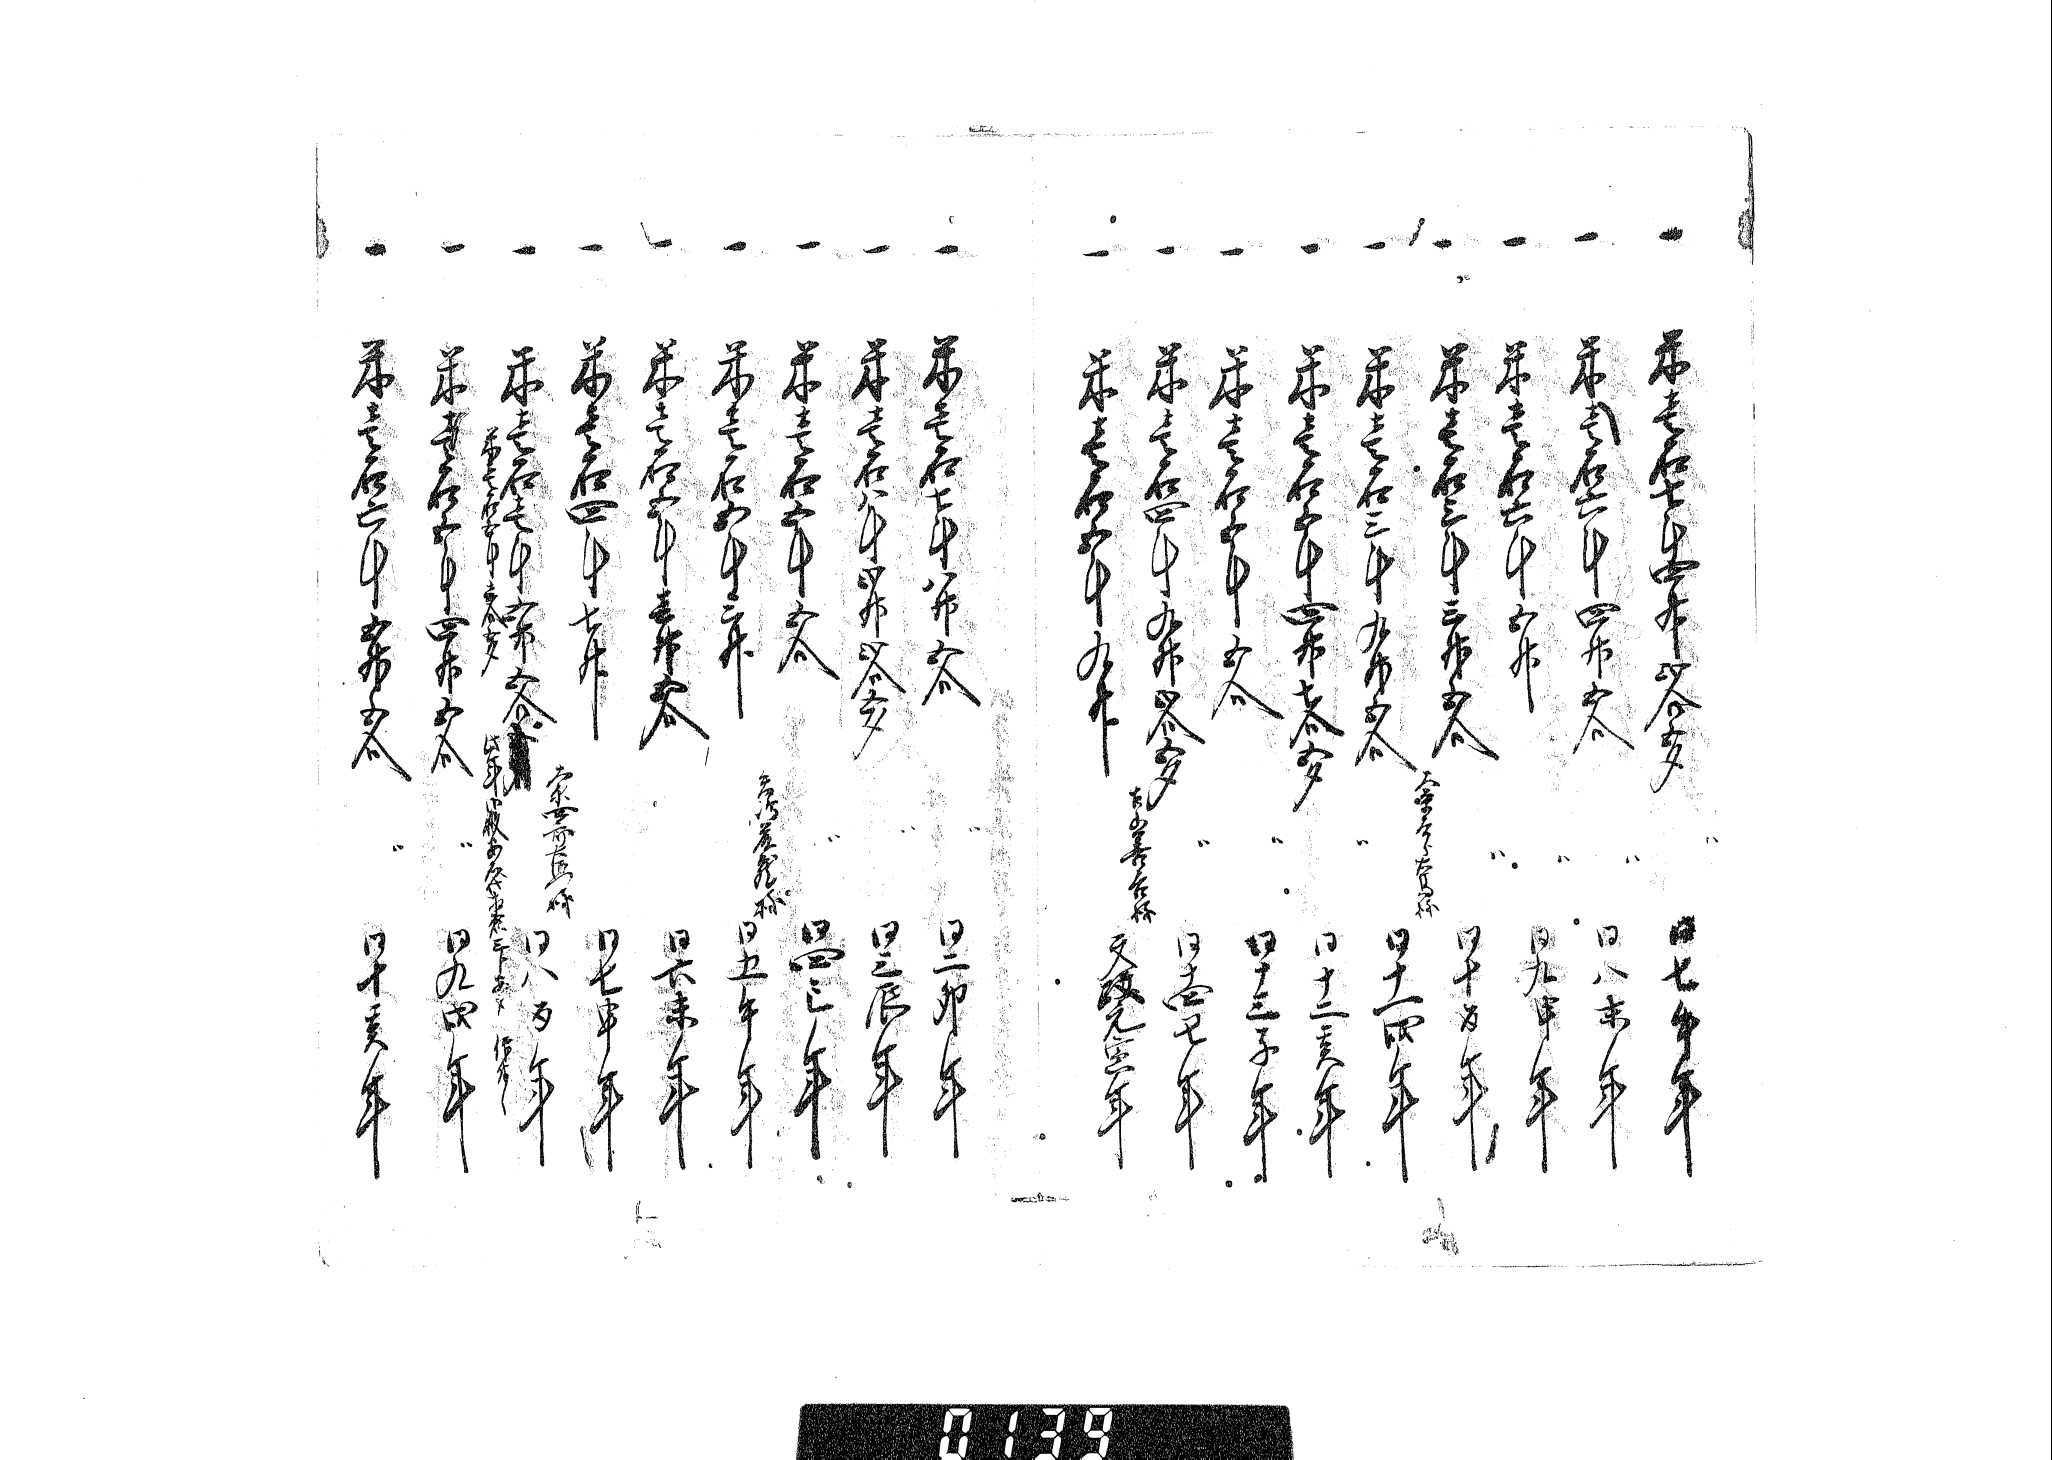 一 米壱石七斗四升四合五夕 〃 同七午年
一 米壱石六斗四升五合 〃 同八未年
一 米壱石六斗五升 〃 同九申年
一 米壱石三斗三升五合 〃 同十酉年
一 米壱石三斗九升五合 同十一戌年
一 米壱石五斗四升七合五夕 〃 同十二亥年
一 米壱石五斗五合 〃 同十三子年
一 米壱石四斗九升四合五夕 〃 同十四丑年
一 米壱石五斗九升 天保元寅年
一 米壱石七斗八升五合 〃 同二卯年
一 米壱石八斗四升四合五夕 〃 同三辰年
一 米壱石五斗五合 〃 同四巳年
一 米壱石五斗三升 同五午年
一 米壱石五斗壱升五合 同六未年
一 米壱石四斗七升 同七申年
一 米壱石壱斗五升五合 同八酉年
一 米壱石五斗四升五合 〃 同九戌年
一 米壱石六斗五升五合 〃 同十亥年
0139